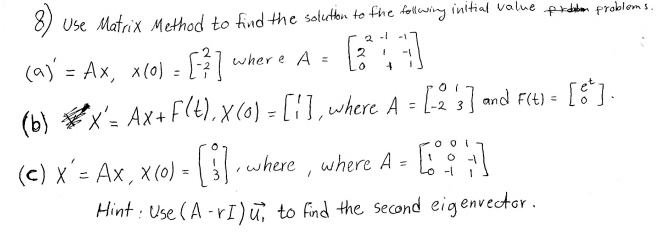 8) Use Matrix Method to find the solution to the following initial value problems.
(a)' = Ax, x(0) = [2 -2 1] where A = [2 -1 -1; 2 1 -1; 0 1 1]
(b) X' = Ax + F(t), X(0) = [1 1], where A = [0 1; -2 3] and F(t) = [e^t 0].
(c) X' = Ax, X(0) = [0 1 3], where, where A = [0 0 1; 1 0 -1; 0 -1 1]
Hint: Use (A - rI) u⃗, to find the second eigenvector.